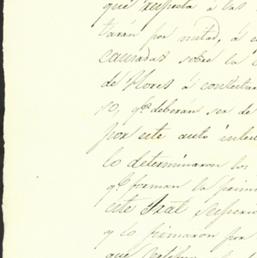 que respecta á las
tarán por mitad, á e
causadas sobre la
de Flores á contestar
yo, qe. deberan ser de
por este auto inter
lo determinaron los
qe. forman la prim
este Tral.
y lo firmaron por
que